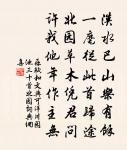 漢水巴山樂有餘
一麾從此首歸途
北園草木憑君問
許我他年作主無
蘇軾和文與可洋川園
池三十首北園詞典網